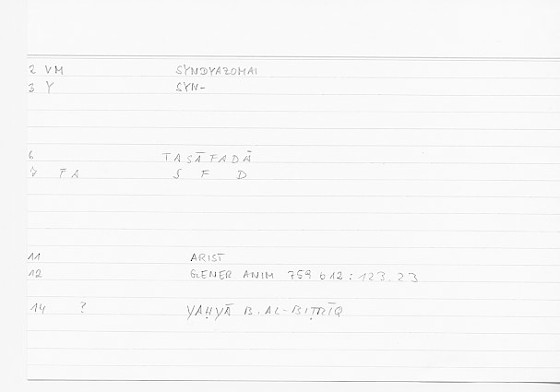 2 VM SYNDYAZOMAI
3 Y SYN-
6 TASĀFADĀ
7 FA S F D
11 ARIST
12 GENER ANIM 759 b12 : 123.23
14 ? YAḤYĀ B. AL-BIṬRĪQ